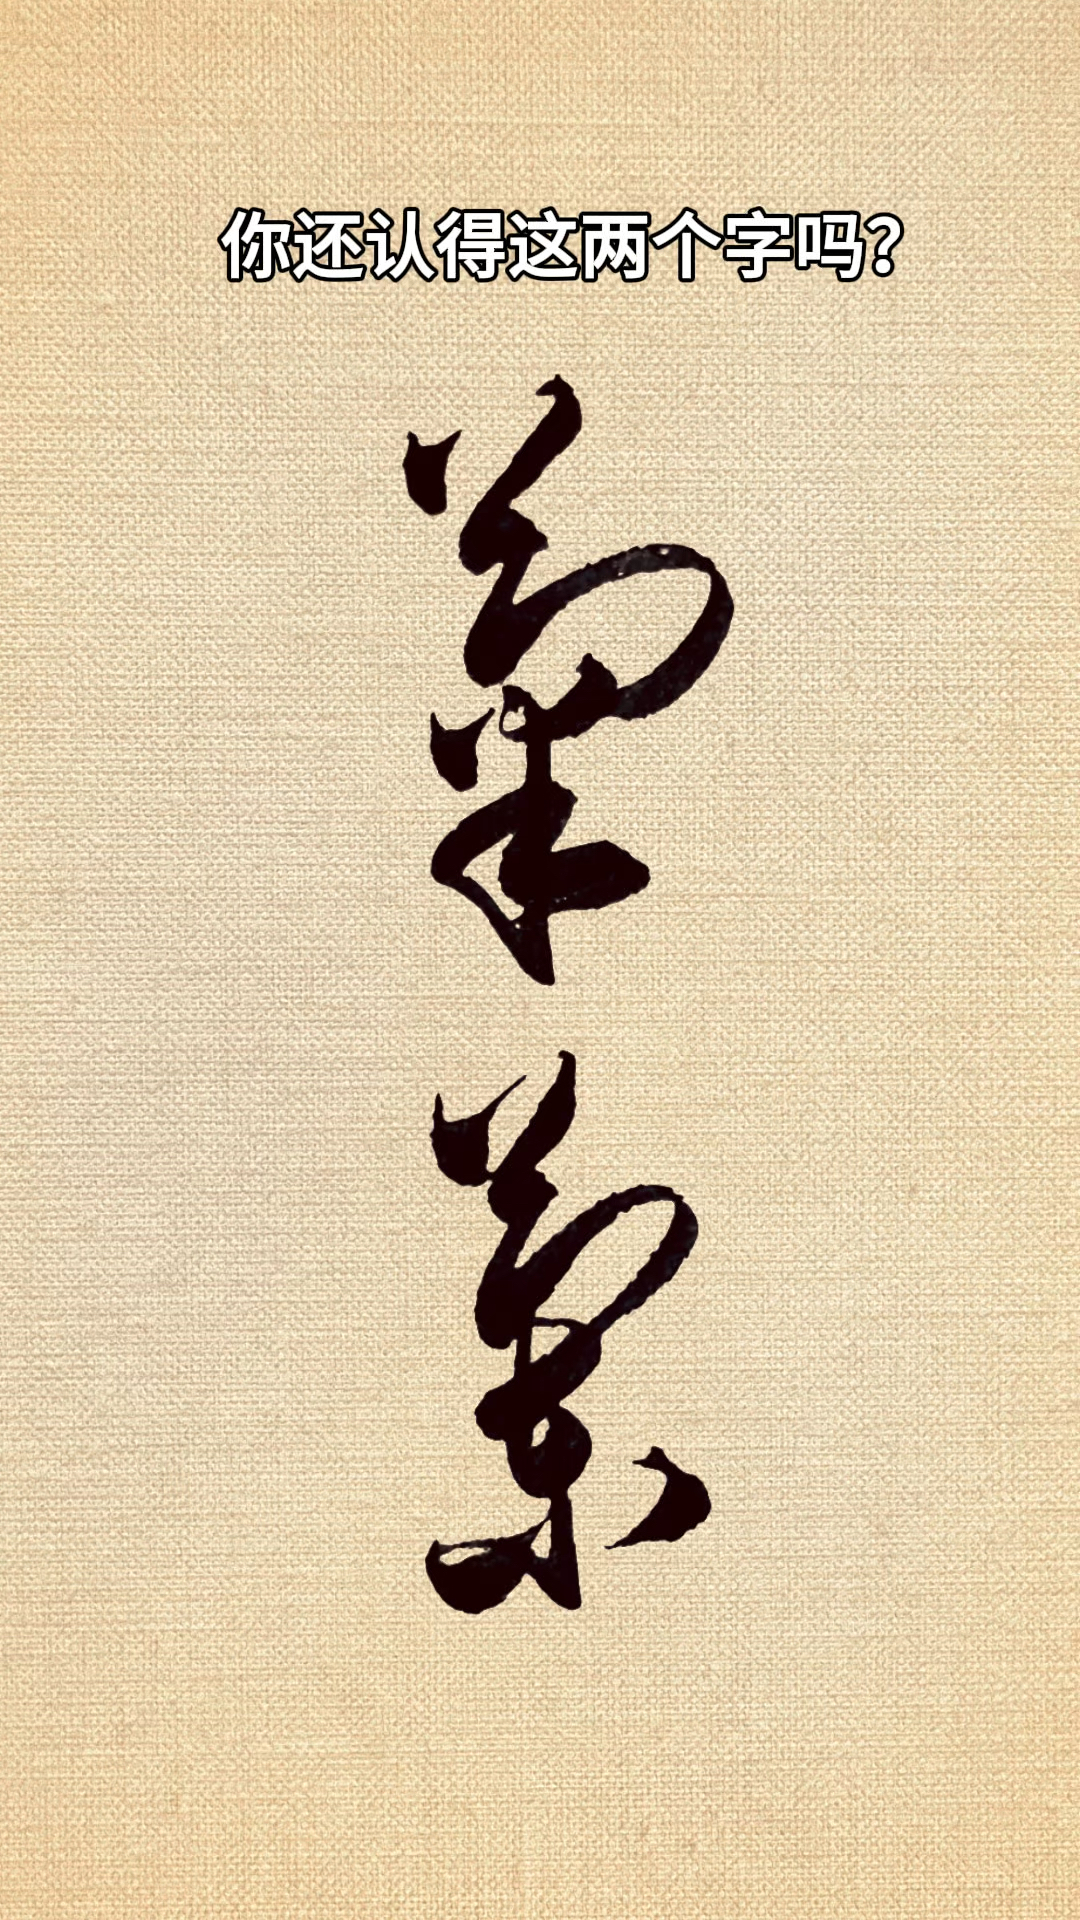 你还认得这两个字吗?
菊
蘭